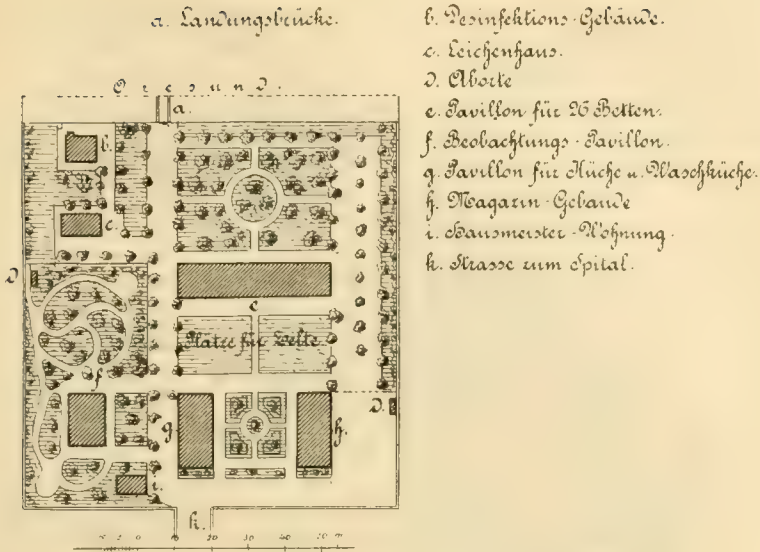 a. Landungsbrücke.
b. Desinfektions-Gebäude.
c. Leichenhaus.
d. Aborte
e. Pavillon für 26 Betten.
f. Beobachtungs-Pavillon.
g. Pavillon für Küche u. Waschküche.
h. Magazin-Gebäude
i. Hausmeister-Wohnung.
k. Strasse zum Spital.
Oresund.
a.
b.
c.
d.
e
Platze für Zelte.
f
g
h.
d.
i.
k.
10 20 30 40 50 m